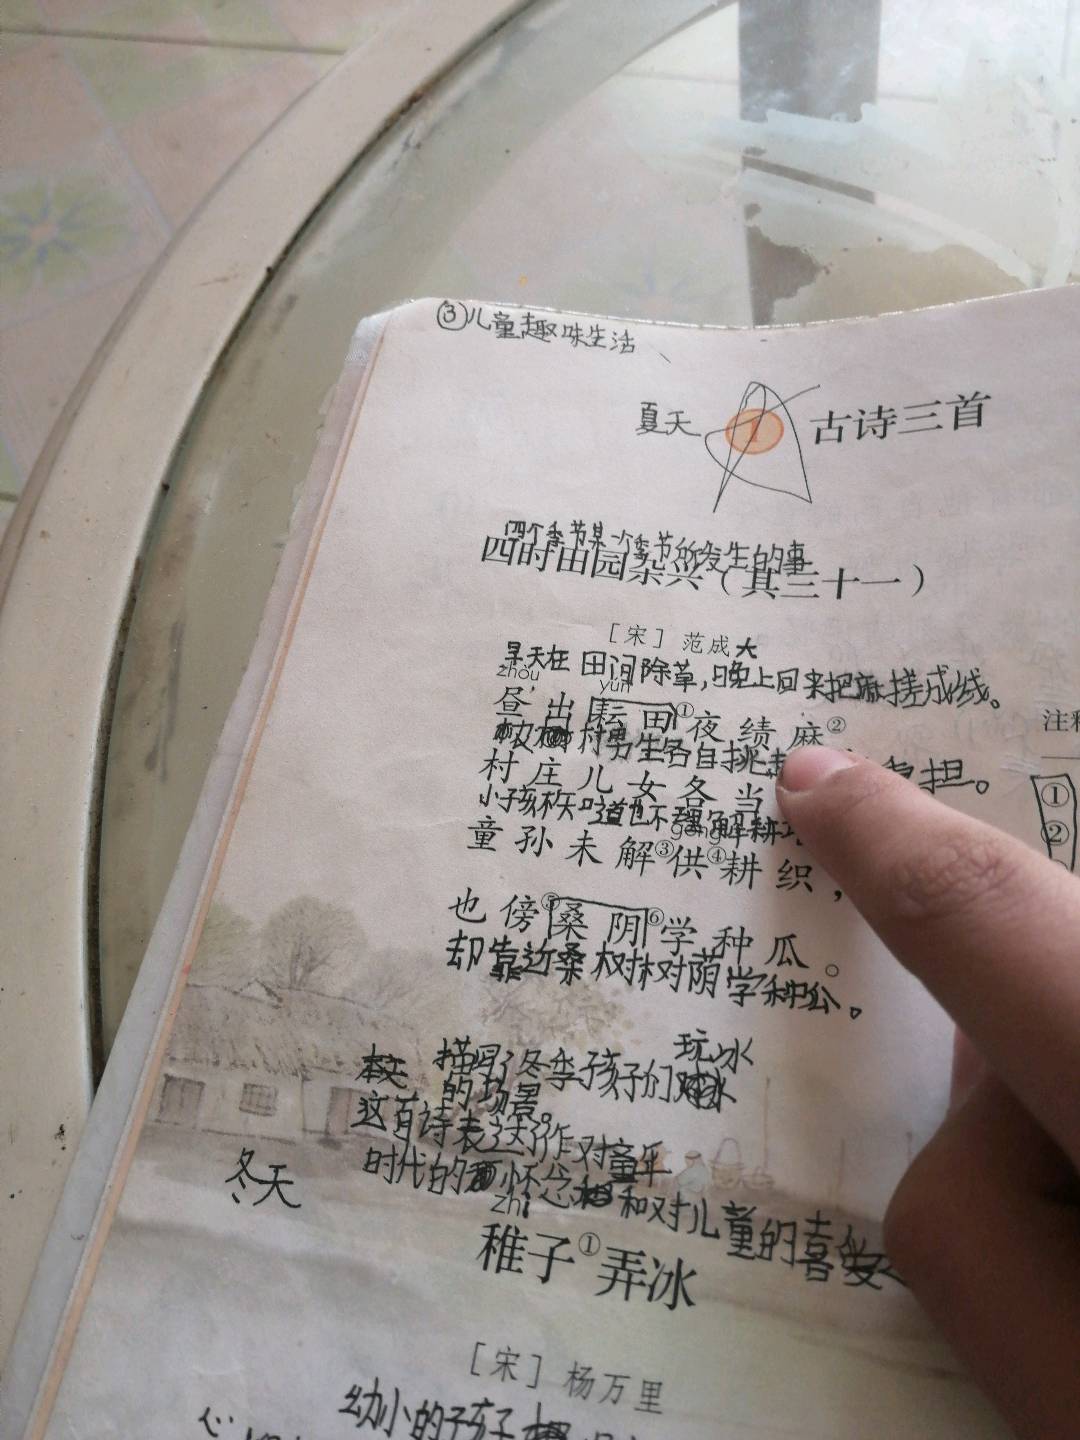 ③儿童趣味生活
夏天
1 古诗三首
四个季节某一个季节所发生的事
四时田园杂兴（其三十一）
［宋］范成大
早天在田间除草，晚上回来把麻搓成线。
zhòu yún
昼出耘田①夜绩麻②
村男生各自挑 负担。
注释
村庄儿女各当
①
小孩不知道也不理解耕
②
gòng
童孙未解③供④耕织，
也傍⑤桑阴⑥学种瓜。
却靠近桑树树荫学种
描写了冬季孩子们玩冰
的场景。
这首诗表达了作对童年
时代的怀念和对儿童的喜爱
冬天
zhì
稚子①弄冰
［宋］杨万里
幼小的孩子
心